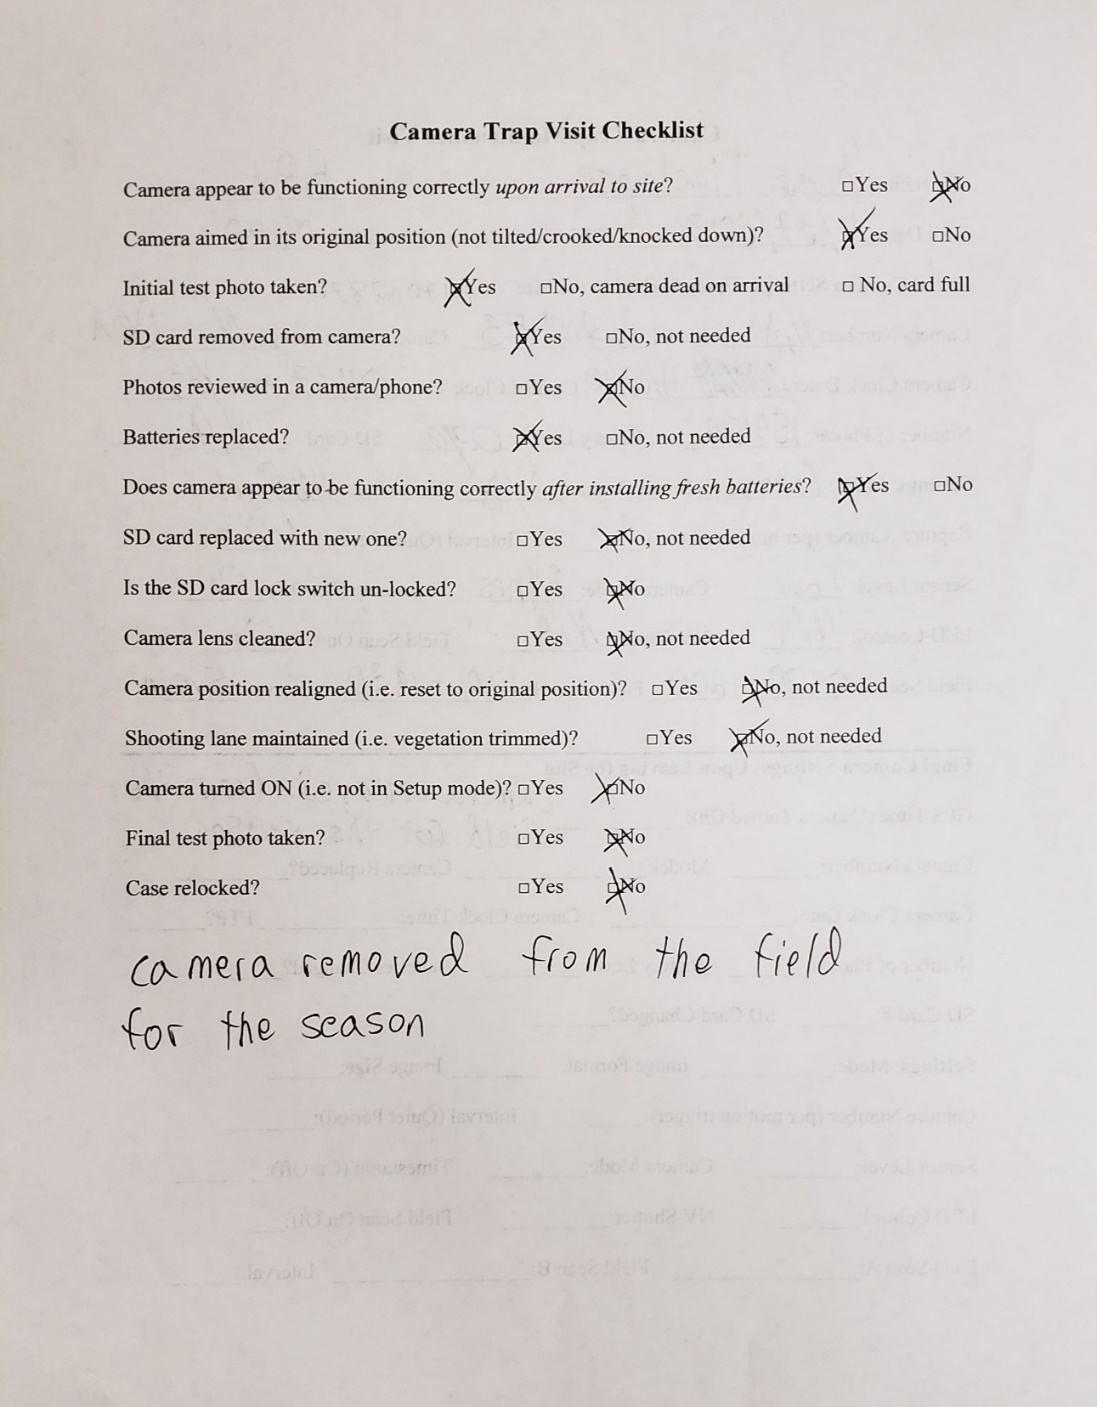 Camera Trap Visit Checklist
Camera appear to be functioning correctly upon arrival to site? □Yes ☒No
Camera aimed in its original position (not tilted/crooked/knocked down)? ☒Yes □No
Initial test photo taken? ☒Yes □No, camera dead on arrival □ No, card full
SD card removed from camera? ☒Yes □No, not needed
Photos reviewed in a camera/phone? □Yes ☒No
Batteries replaced? ☒Yes □No, not needed
Does camera appear to be functioning correctly after installing fresh batteries? ☒Yes □No
SD card replaced with new one? □Yes ☒No, not needed
Is the SD card lock switch un-locked? □Yes ☒No
Camera lens cleaned? □Yes ☒No, not needed
Camera position realigned (i.e. reset to original position)? □Yes ☒No, not needed
Shooting lane maintained (i.e. vegetation trimmed)? □Yes ☒No, not needed
Camera turned ON (i.e. not in Setup mode)? □Yes ☒No
Final test photo taken? □Yes ☒No
Case relocked? □Yes ☒No
camera removed from the field
for the season